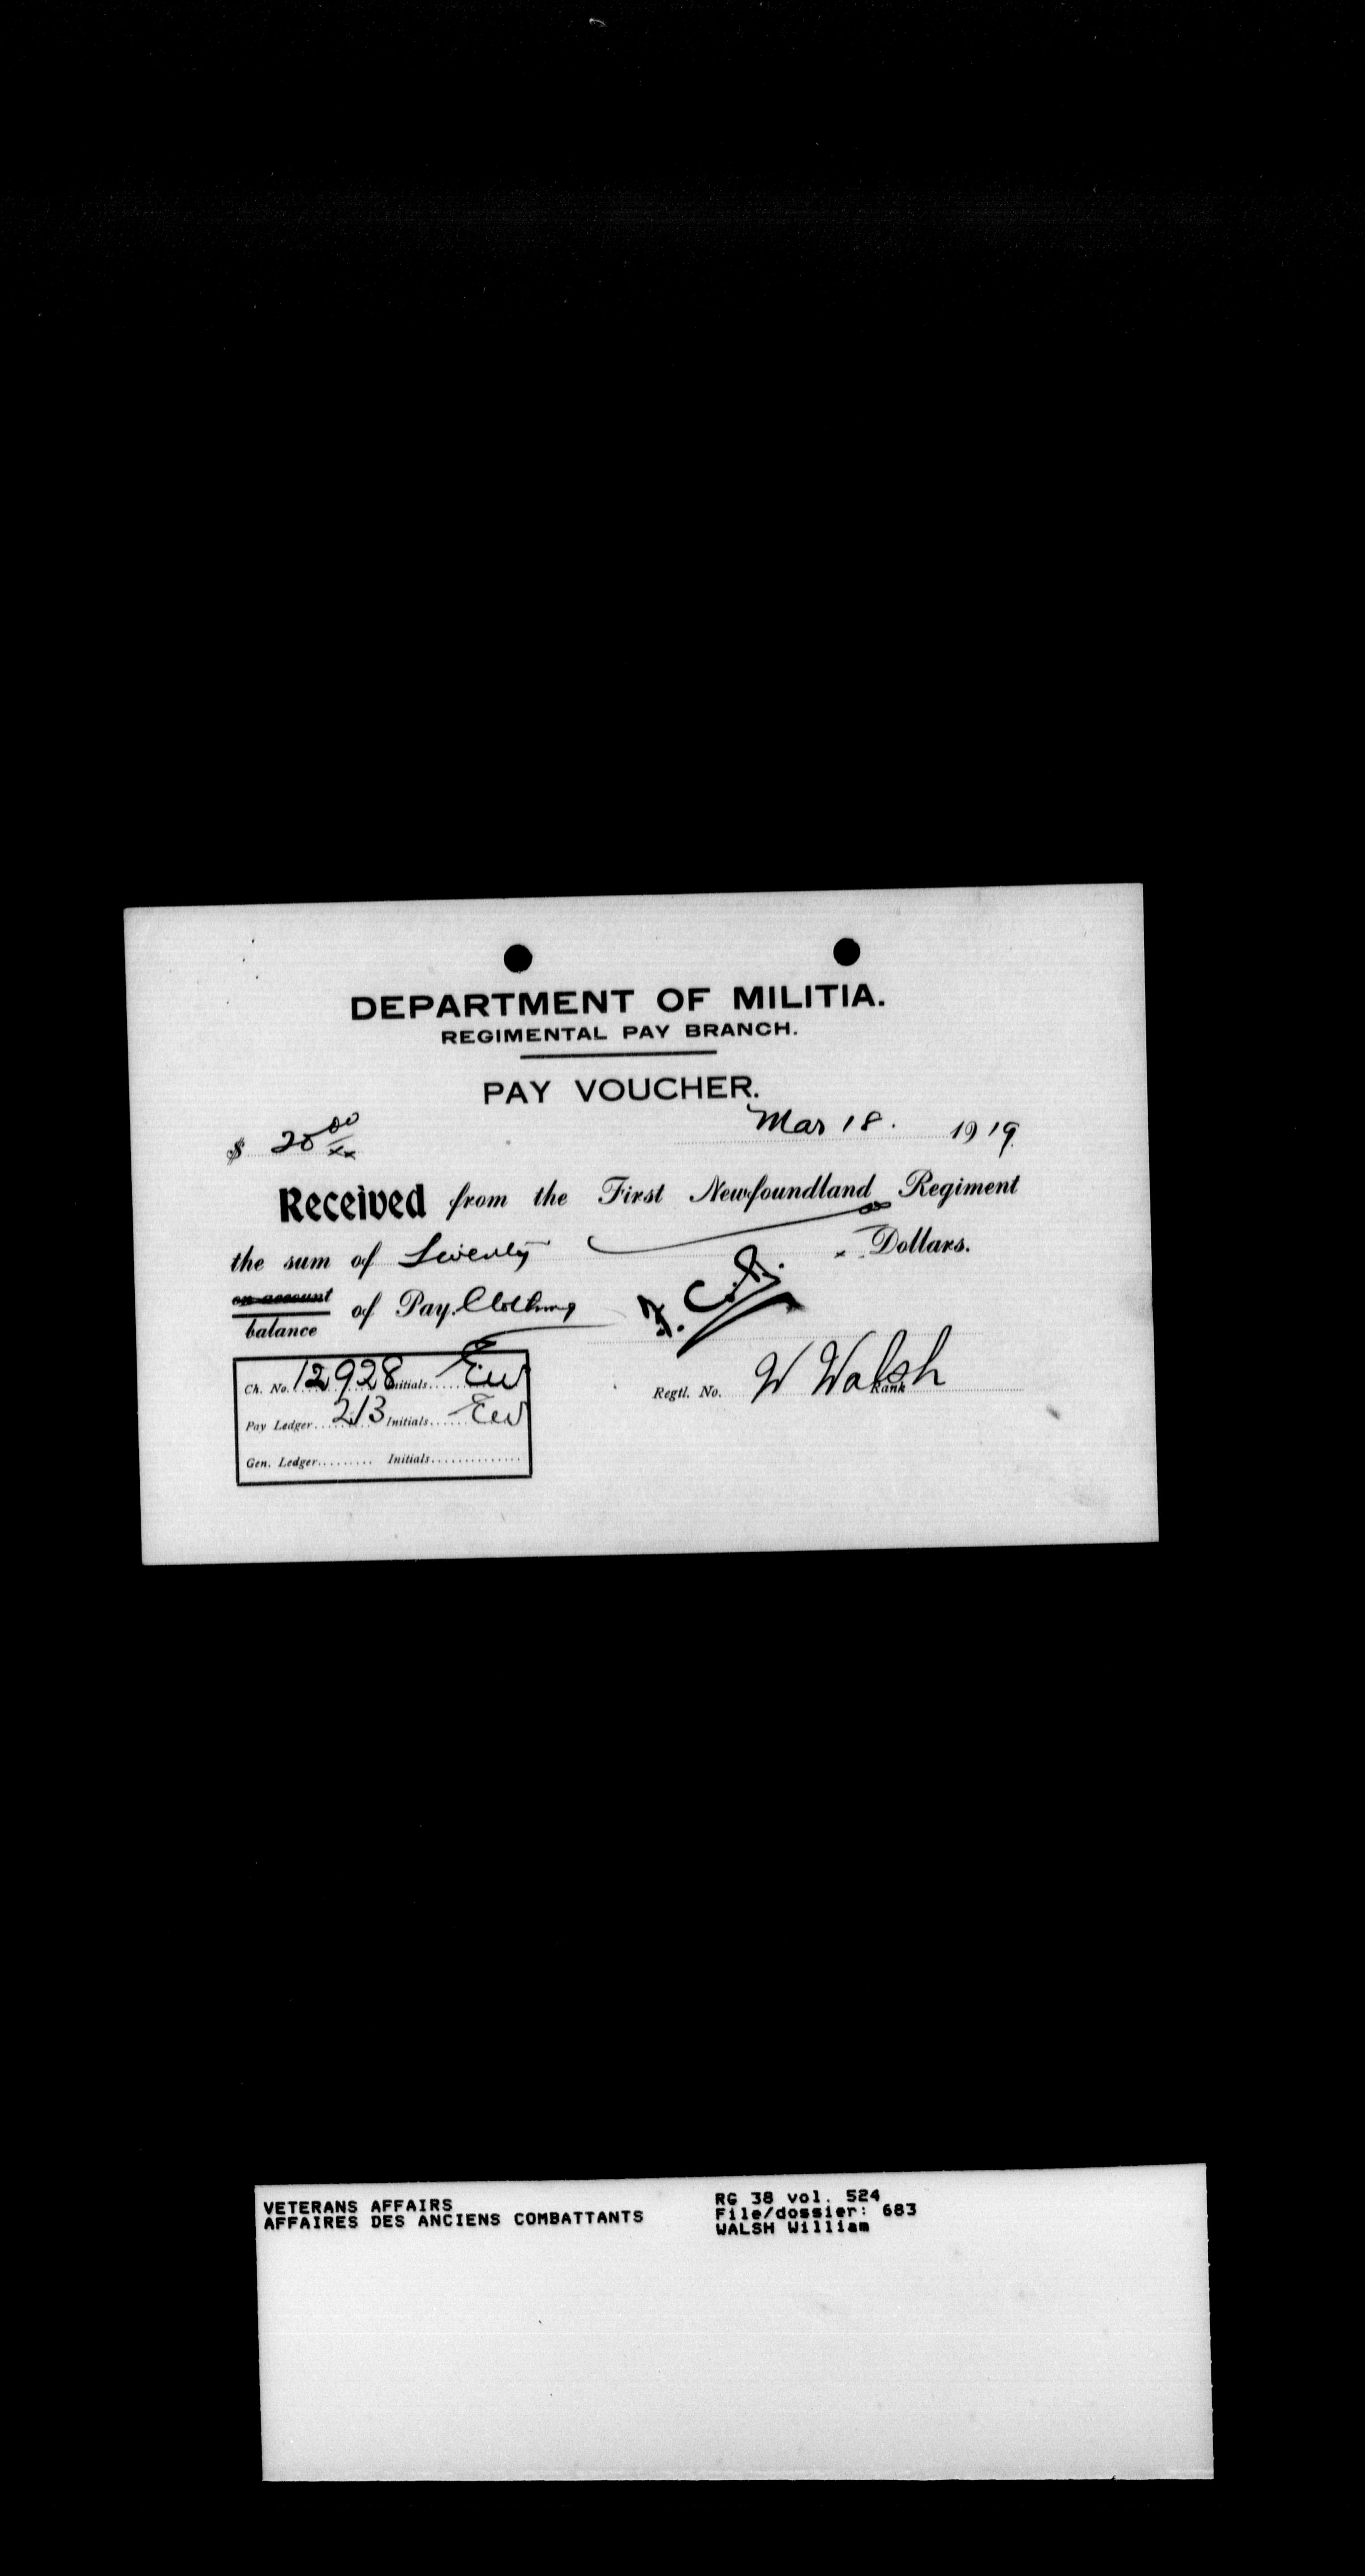 DEPARTMENT OF MILITIA.
REGIMENTAL PAY BRANCH.
PAY VOUCHER.
$ 20 00/xx Mar 18. 1919
Received from the First Newfoundland Regiment
the sum of Twenty Dollars.
on account
balance of Pay. Clothing
Ch. No. 12928 Initials EW
Regtl. No. W Walsh Rank
Pay Ledger 213 Initials EW
Gen. Ledger Initials
VETERANS AFFAIRS
AFFAIRES DES ANCIENS COMBATTANTS
RG 38 vol. 524
File/dossier: 683
WALSH William